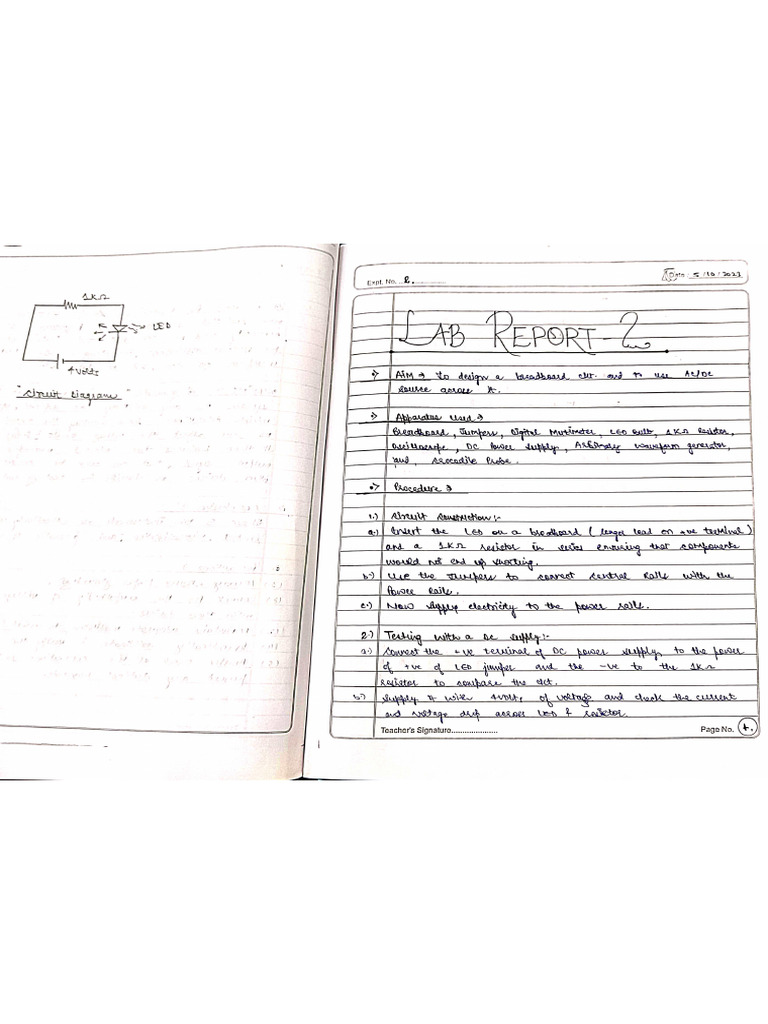 1KΩ
LED
4 Volts
"Circuit Diagram"
Expt. No. 2.
Date : 5 / 10 / 2023
LAB REPORT-2
•> AIM → To design a breadboard ckt. and to use AC/DC
source across it.
•> Apparatus Used →
Breadboard, Jumpers, Digital Multimeter, LED Bulb, 1KΩ Resistor,
Oscilloscope, DC Power Supply, Arbitrary waveform generator,
and, Crocodile Probe.
•> Procedure →
1.) Circuit Construction:-
a.) Insert the LED on a breadboard (longer lead on +ve terminal)
and a 1KΩ resistor in series ensuring that components
would not end up shorting.
b.) Use the Jumpers to connect central Rails with the
Power Rails.
c.) Now supply electricity to the power rails.
2.) Testing with a DC supply:-
a.) Connect the +ve terminal of DC power supply to the power
of +ve of LED jumper and the -ve to the 1KΩ
resistor to the ckt.
b.) Supply it with 4volts of voltage and check the current
and voltage drop across LED & resistor.
Teacher's Signature
Page No. 1.